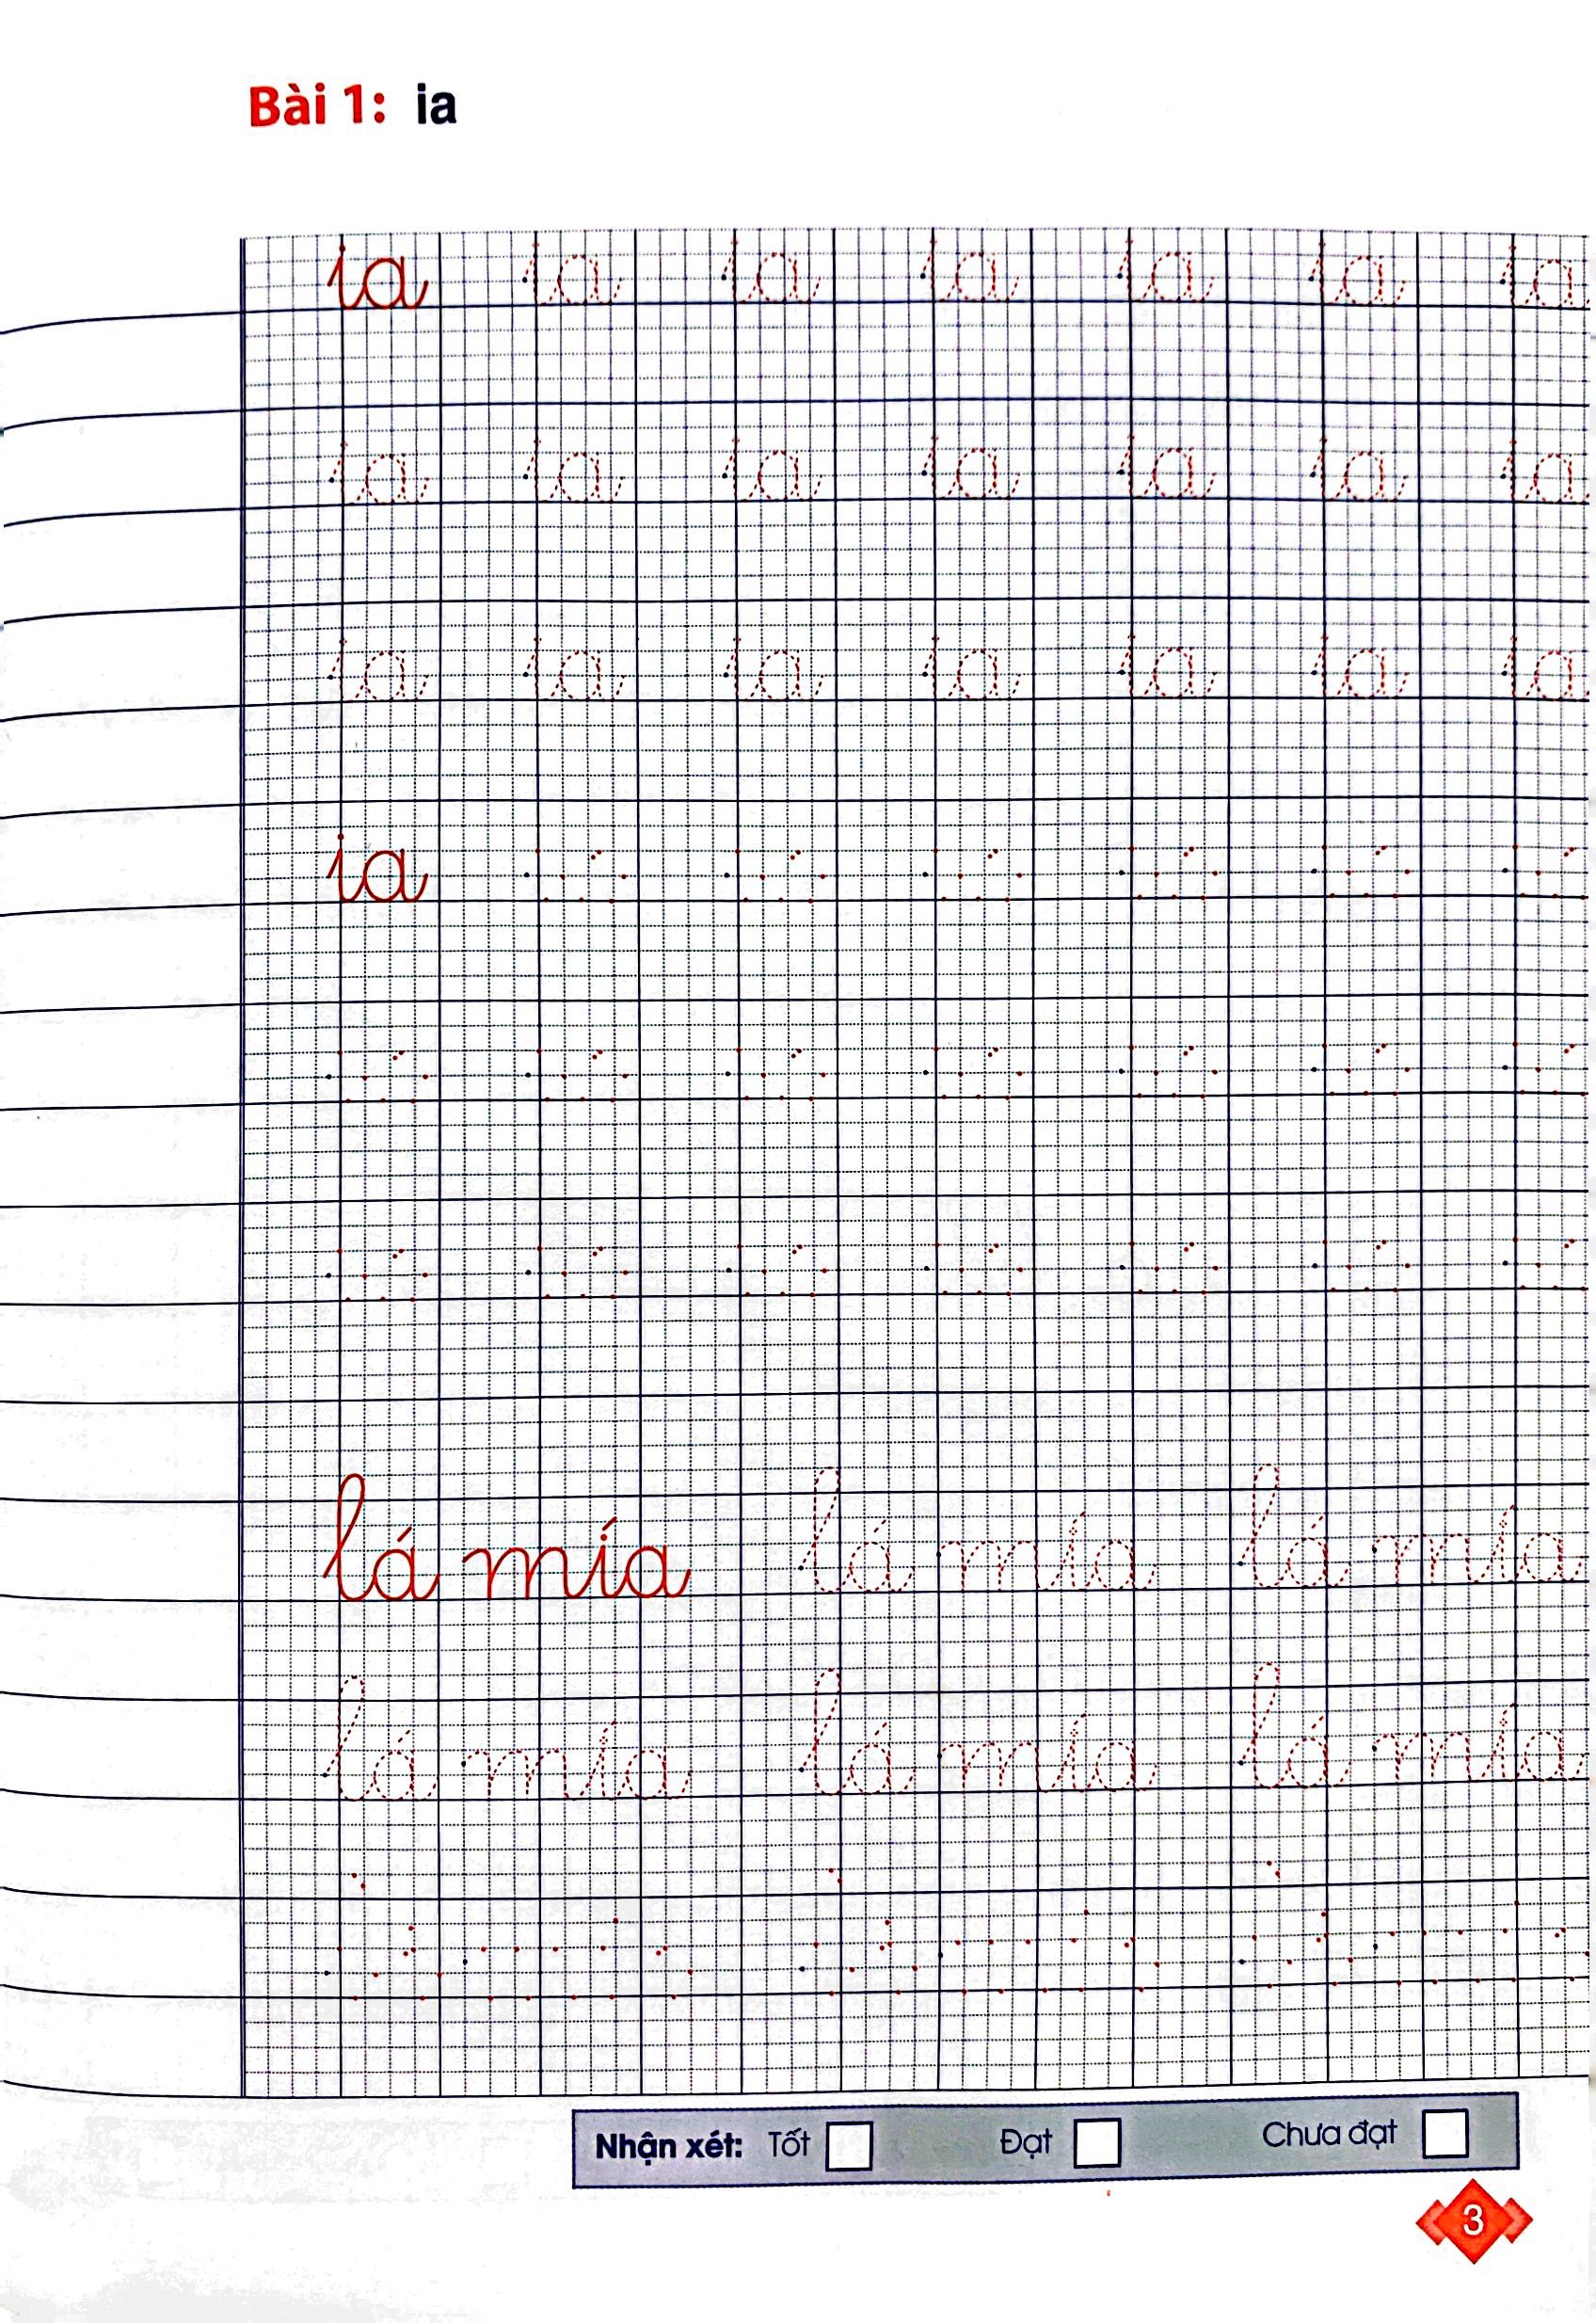 Bài 1: ia
ia ia ia ia ia ia ia
ia ia ia ia ia ia ia
ia ia ia ia ia ia ia
ia
lá mía lá mía lá mía
lá mía lá mía lá mía
Nhận xét: Tốt Đạt Chưa đạt
3